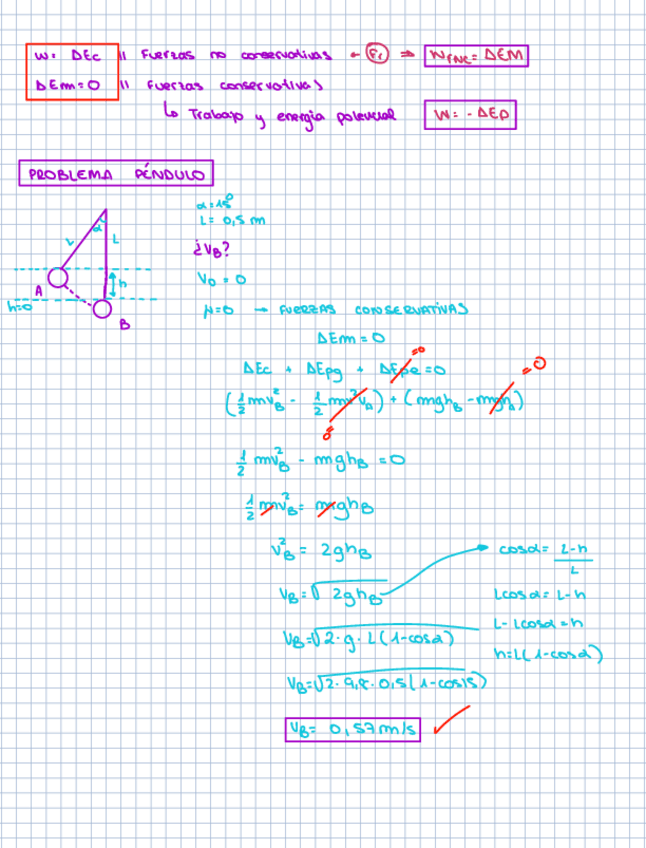 W = ΔEc || Fuerzas no conservativas ← Fr ⇒ WFNC = ΔEM
ΔEm = 0 || Fuerzas conservativas
↳ Trabajo y energia potencial W = - ΔEp
PROBLEMA PÉNDULO
α = 15°
L = 0,5 m
¿VB?
V0 = 0
μ = 0 → FUERZAS CONSERVATIVAS
L α L
A h
h=0
B
ΔEm = 0
ΔEc + ΔEpg + ΔEpe = 0 =0
(½mv²B - ½mv²A) + (mghB - mghA) = 0
0
½mv²B - mghB = 0
½mv²B = mghB
v²B = 2ghB
VB = √2ghB
VB = √2·g·L(1-cosα)
VB = √2·9,8·0,5(1-cos15)
VB = 0,57 m/s ✓
cosα = L-h / L
Lcosα = L-h
L - Lcosα = h
h = L(1-cosα)